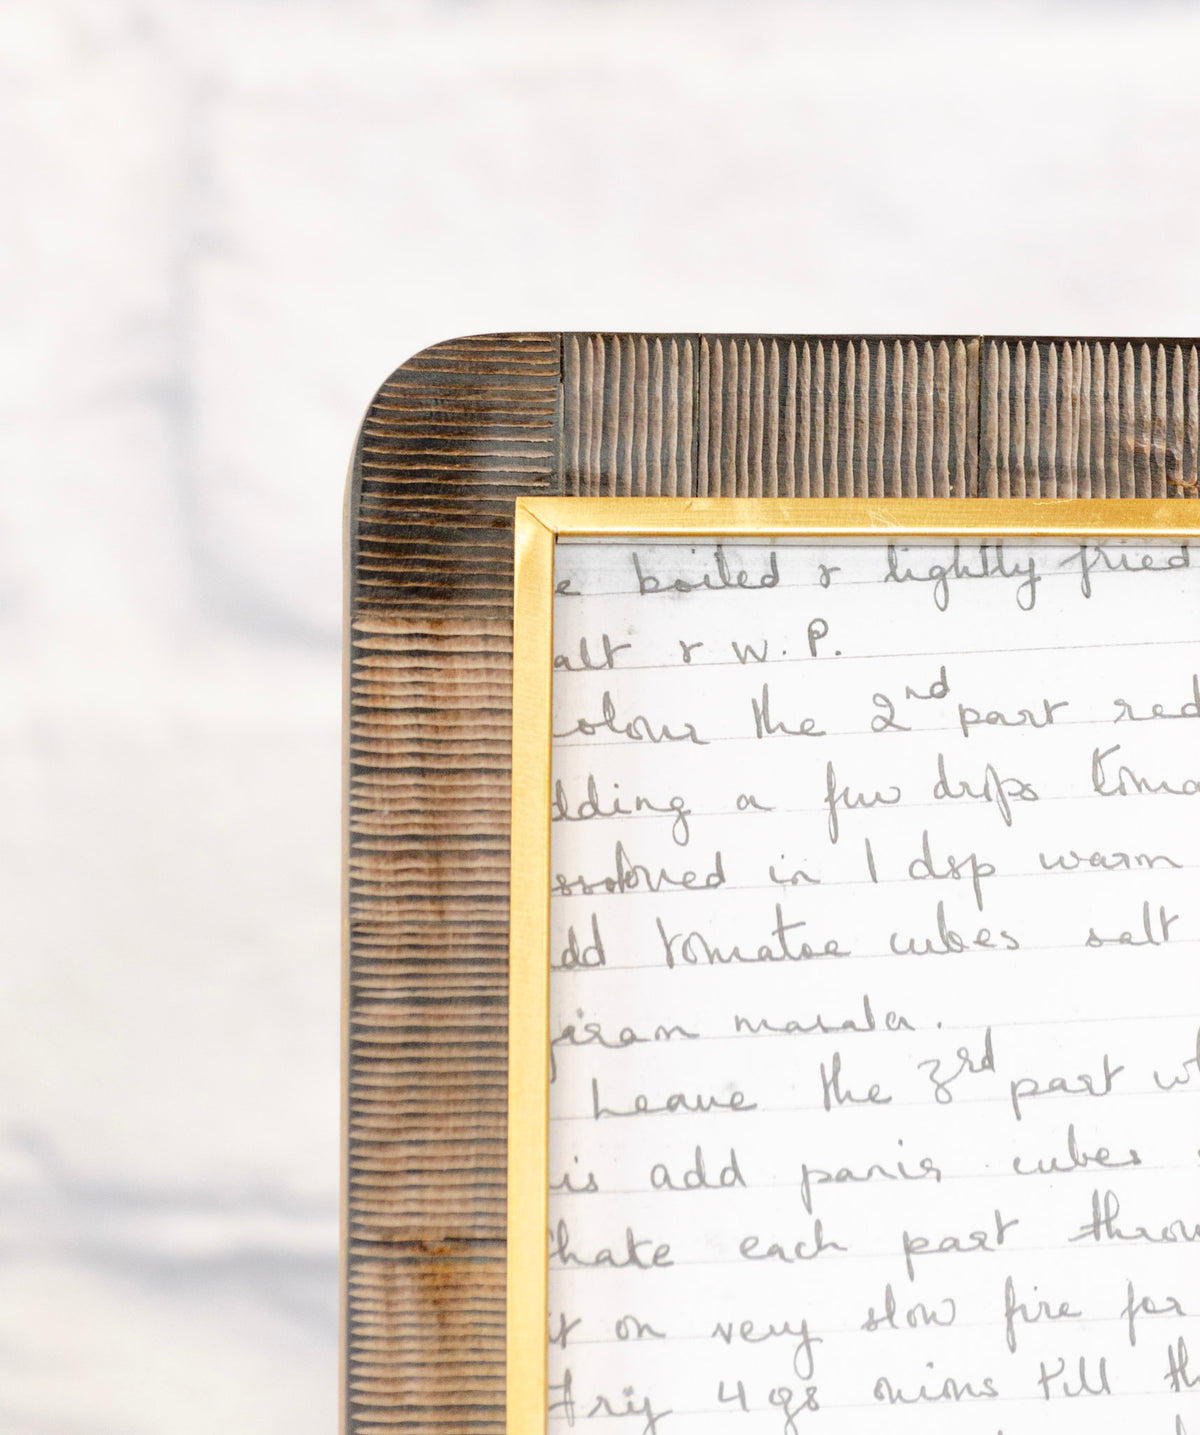 e boiled & lightly fried
alt & W.P.
olour the 2nd part red
dding a few drops toma
ssolved in 1 dsp warm
dd tomatoe cubes salt
garam masala.
Leave the 3rd part wh
is add panir cubes
hake each part throu
it on very slow fire for
Fry 4 ozs onions till th